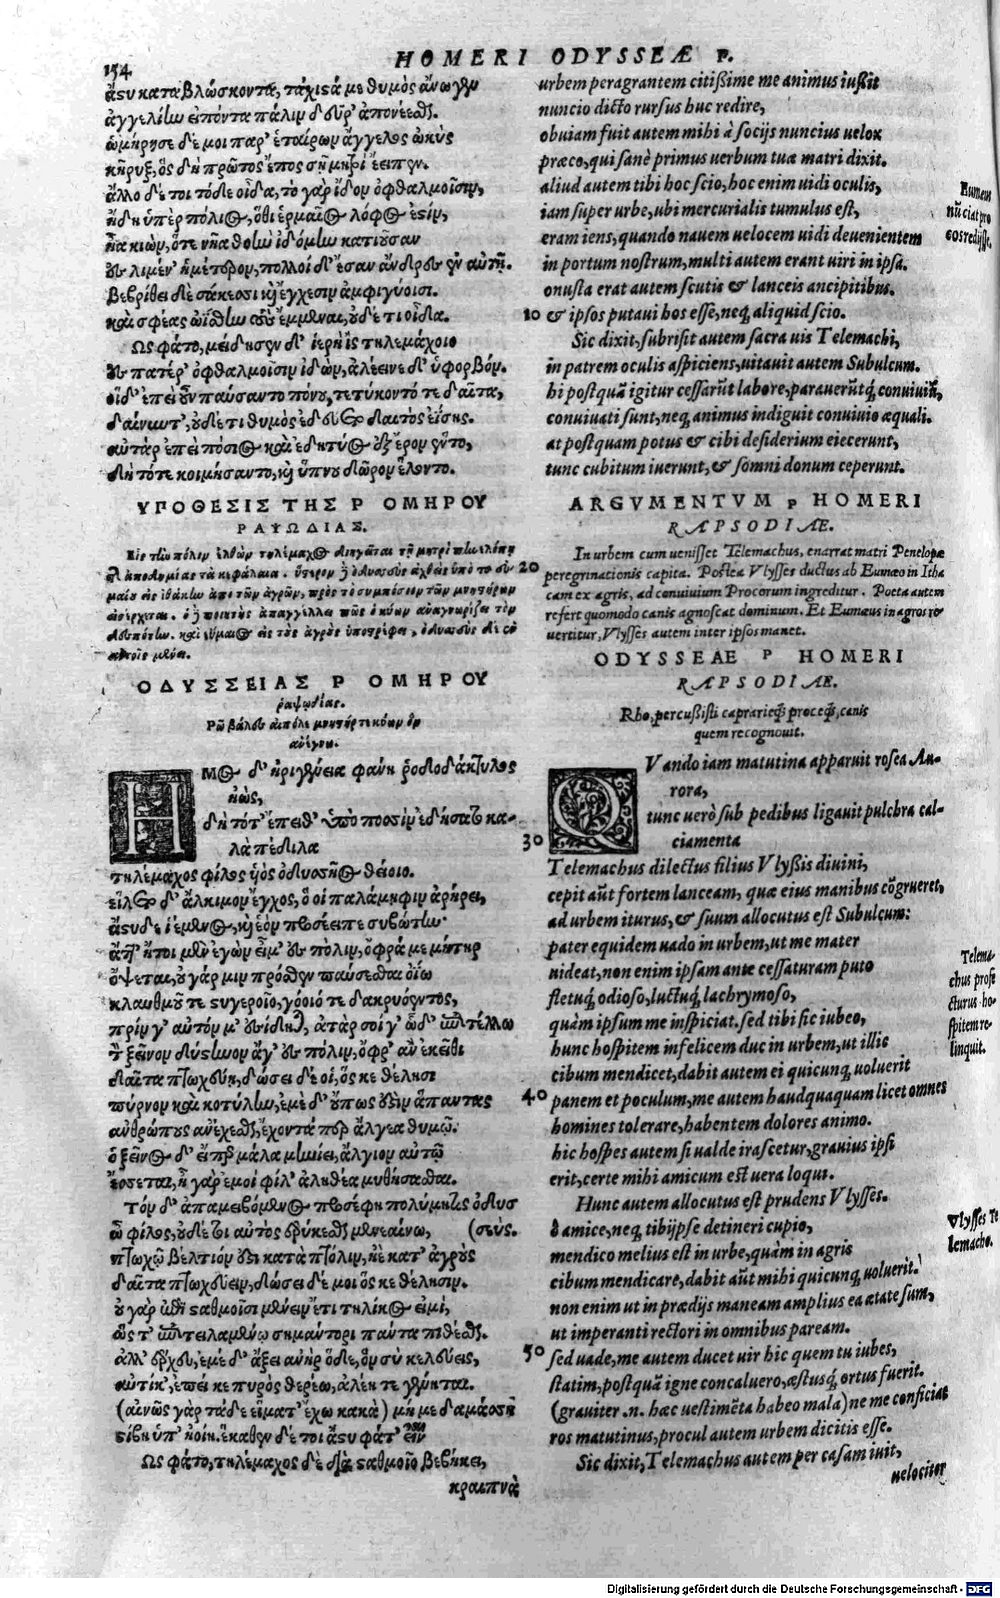 154
HOMERI ODYSSEÆ P.
ἄστυ καταβλώσκοντα, τάχιστά με θυμὸς ἄνωγεν
ἀγγελίην εἰπόντα πάλιν δεῦρ' ἀπονέεσθαι.
ὡμήρησε δέ μοι παρ' ἑταίρων ἄγγελος ὠκὺς
κῆρυξ, ὃς δὴ πρῶτος ἔπος σῇ μητρὶ ἔειπεν.
ἄλλο δέ τοι τόδε οἶδα, τὸ γὰρ ἴδον ὀφθαλμοῖσιν,
ἤδη ὑπὲρ πόλιος, ὅθι ἑρμαῖος λόφος ἐστίν,
ἦα κιὼν, ὅτε νῆα θοὴν ἰδόμην κατιοῦσαν
ἐς λιμέν' ἡμέτερον, πολλοὶ δ' ἔσαν ἄνδρες ἐν αὐτῇ.
βεβρίθει δὲ σάκεσσι καὶ ἔγχεσιν ἀμφιγύοισι.
καὶ σφέας ὠΐσθην τοὺς ἔμμεναι, οὐδέ τι οἶδα.
Ως φάτο, μείδησεν δ' ἱερὴ ἲς τηλεμάχοιο
ἐς πατέρ' ὀφθαλμοῖσιν ἰδὼν, ἀλέεινε δ' ὑφορβόν.
οἱ δ' ἐπεὶ οὖν παύσαντο πόνου, τετύκοντό τε δαῖτα,
δαίνυντ', οὐδέ τι θυμὸς ἐδεύετο δαιτὸς ἐΐσης.
αὐτὰρ ἐπεὶ πόσιος καὶ ἐδητύος ἐξ ἔρον ἕντο,
δὴ τότε κοιμήσαντο, καὶ ὕπνου δῶρον ἕλοντο.
ΥΠΟΘΕΣΙΣ ΤΗΣ Ρ ΟΜΗΡΟΥ
ΡΑΨΩΔΙΑΣ.
Εἰς τὴν πόλιν ἐλθὼν τηλέμαχος διηγεῖται τῇ μητρὶ πηνελόπῃ
τῆς ἀποδημίας τὰ κεφάλαια. ὕστερον δὲ ὀδυσσεὺς ἀχθεὶς ὑπὸ τοῦ εὐ
μαίου εἰς ἰθάκην ἀπὸ τῶν ἀγρῶν, πρὸς τὸ συμπόσιον τῶν μνηστήρων
εἰσέρχεται. ὁ δὲ ποιητὴς ἀπαγγέλλει πῶς ὁ κύων ἀναγνωρίζει τὸν
δεσπότην. καὶ εὔμαιος εἰς τοὺς ἀγροὺς ὑποστρέφει, ὀδυσσεὺς δὲ ἐν
αὐτοῖς μένει.
ΟΔΥΣΣΕΙΑΣ Ρ ΟΜΗΡΟΥ
ῥαψῳδίας.
Ρῶ βάλεν αἰπόλε μνηστήρ τε κύων ὃν
ἀνέγνω.
ΗΜος δ' ἠριγένεια φάνη ῥοδοδάκτυλος
ἠώς,
δὴ τότ' ἔπειθ' ὑπὸ ποσσὶν ἐδήσατο κα-
λὰ πέδιλα
τηλέμαχος φίλος υἱὸς ὀδυσσῆος θείοιο.
εἵλετο δ' ἄλκιμον ἔγχος, ὅ οἱ παλάμηφιν ἀρήρει,
ἄστυδε ἱέμενος, καὶ ἑὸν προσέειπε συβώτην·
ἄττ' ἤτοι μὲν ἐγὼν εἶμ' ἐς πόλιν, ὄφρά με μήτηρ
ὄψεται, οὐ γάρ μιν πρόσθεν παύσεσθαι ὀΐω
κλαυθμοῦ τε στυγεροῖο, γόοιό τε δακρυόεντος,
πρίν γ' αὐτόν μ' ἐσίδηται, ἀτὰρ σοί γ' ὧδ' ἐπιτέλλω
τὸν ξεῖνον δύστηνον ἄγ' ἐς πόλιν, ὄφρ' ἂν ἐκεῖθι
δαῖτα πτωχεύῃ, δώσει δέ οἱ, ὅς κε θέλησι
πύρνον καὶ κοτύλην, ἐμὲ δ' οὔπως ἐστὶν ἅπαντας
ἀνθρώπους ἀνέχεσθαι, ἔχοντά περ ἄλγεα θυμῷ.
ὁ ξεῖνος δ' εἴπερ μάλα μηνίει, ἄλγιον αὐτῷ
ἔσσεται, ἦ γὰρ ἐμοὶ φίλ' ἀληθέα μυθήσασθαι.
Τόν δ' ἀπαμειβόμενος προσέφη πολύμητις ὀδυσ
ὦ φίλος, οὐδέ τοι αὐτὸς ἐρύκεσθαι μενεαίνω, (σεύς.
πτωχῷ βέλτιόν ἐστι κατὰ πτόλιν, ἠὲ κατ' ἀγροὺς
δαῖτα πτωχεύειν, δώσει δέ μοι ὅς κε θέλησιν.
οὐ γὰρ ἐπὶ σταθμοῖσι μένειν ἔτι τηλίκος εἰμὶ,
ὥς τ' ἐπιτειλαμένῳ σημάντορι πάντα πιθέσθαι.
ἀλλ' ἔρχευ, ἐμὲ δ' ἄξει ἀνὴρ ὅδε, ὃν σὺ κελεύεις,
αὐτίκ', ἐπεί κε πυρὸς θερέω, ἀλέη τε γένηται.
(αἰνῶς γὰρ τάδε εἵματ' ἔχω κακὰ) μή με δαμάσσῃ
στίβη ὑπ' ηοίη. ἕκαθεν δέ τοι ἄστυ φάτ' εἶναι
Ως φάτο, τηλέμαχος δὲ διὰ σταθμοῖο βεβήκει,
κραιπνὰ
urbem peragrantem citißime me animus iußit
nuncio dicto rursus huc redire,
obuiam fuit autem mihi à socijs nuncius uelox
præco, qui sanè primus uerbum tuæ matri dixit.
aliud autem tibi hoc scio, hoc enim uidi oculis,
iam super urbe, ubi mercurialis tumulus est,
eram iens, quando nauem uelocem uidi deuenientem
in portum nostrum, multi autem erant uiri in ipsa.
onusta erat autem scutis & lanceis ancipitibus.
10 & ipsos putaui hos esse, neq; aliquid scio.
Sic dixit, subrisit autem sacra uis Telemachi,
in patrem oculis aspiciens, uitauit autem Subulcum.
hi postquã igitur cessarũt labore, parauerũtq; conuiuiũ,
conuiuati sunt, neq; animus indiguit conuiuio æquali.
at postquam potus & cibi desiderium eiecerunt,
tunc cubitum iuerunt, & somni donum ceperunt.
ARGVMENTVM P HOMERI
RAPSODIAE.
In urbem cum uenisset Telemachus, enarrat matri Penelopæ
20 peregrinationis capita. Postea Vlysses ductus ab Eumæo in Itha
cam ex agris, ad conuiuium Procorum ingreditur. Poeta autem
refert quomodo canis agnoscat dominum. Et Eumæus in agros re
uertitur, Vlysses autem inter ipsos manet.
ODYSSEAE P HOMERI
RAPSODIAE.
Rho, percußisti caprarieq; proceq;, canis
quem recognouit.
QVando iam matutina apparuit rosea Au-
rora,
tunc uerò sub pedibus ligauit pulchra cal-
30 ciamenta
Telemachus dilectus filius Vlyßis diuini,
cepit aũt fortem lanceam, quæ eius manibus cõgrueret,
ad urbem iturus, & suum allocutus est Subulcum:
pater equidem uado in urbem, ut me mater
uideat, non enim ipsam ante cessaturam puto
fletuq; odioso, luctuq; lachrymoso,
quàm ipsum me inspiciat. sed tibi sic iubeo,
hunc hospitem infelicem duc in urbem, ut illic
cibum mendicet, dabit autem ei quicunq; uoluerit
40 panem et poculum, me autem haudquaquam licet omnes
homines tolerare, habentem dolores animo.
hic hospes autem si ualde irascetur, grauius ipsi
erit, certe mihi amicum est uera loqui.
Hunc autem allocutus est prudens Vlysses.
ô amice, neq; tibi ipse detineri cupio,
mendico melius est in urbe, quàm in agris
cibum mendicare, dabit aũt mihi quicunq; uoluerit.
non enim ut in prædijs maneam amplius ea ætate sum,
ut imperanti rectori in omnibus paream.
50 sed uade, me autem ducet uir hic quem tu iubes,
statim, postquã igne concaluero, æstusq; ortus fuerit.
(grauiter .n. hæc uestimẽta habeo mala) ne me conficiat
ros matutinus, procul autem urbem dicitis esse.
Sic dixit, Telemachus autem per casam iuit,
uelociter
Eumæus
nũciat pro
cos redijsse.
Telema-
chus profe
cturus ho-
spitem re-
linquit.
Vlysses Te
lemacho.
Digitalisierung gefördert durch die Deutsche Forschungsgemeinschaft - DFG